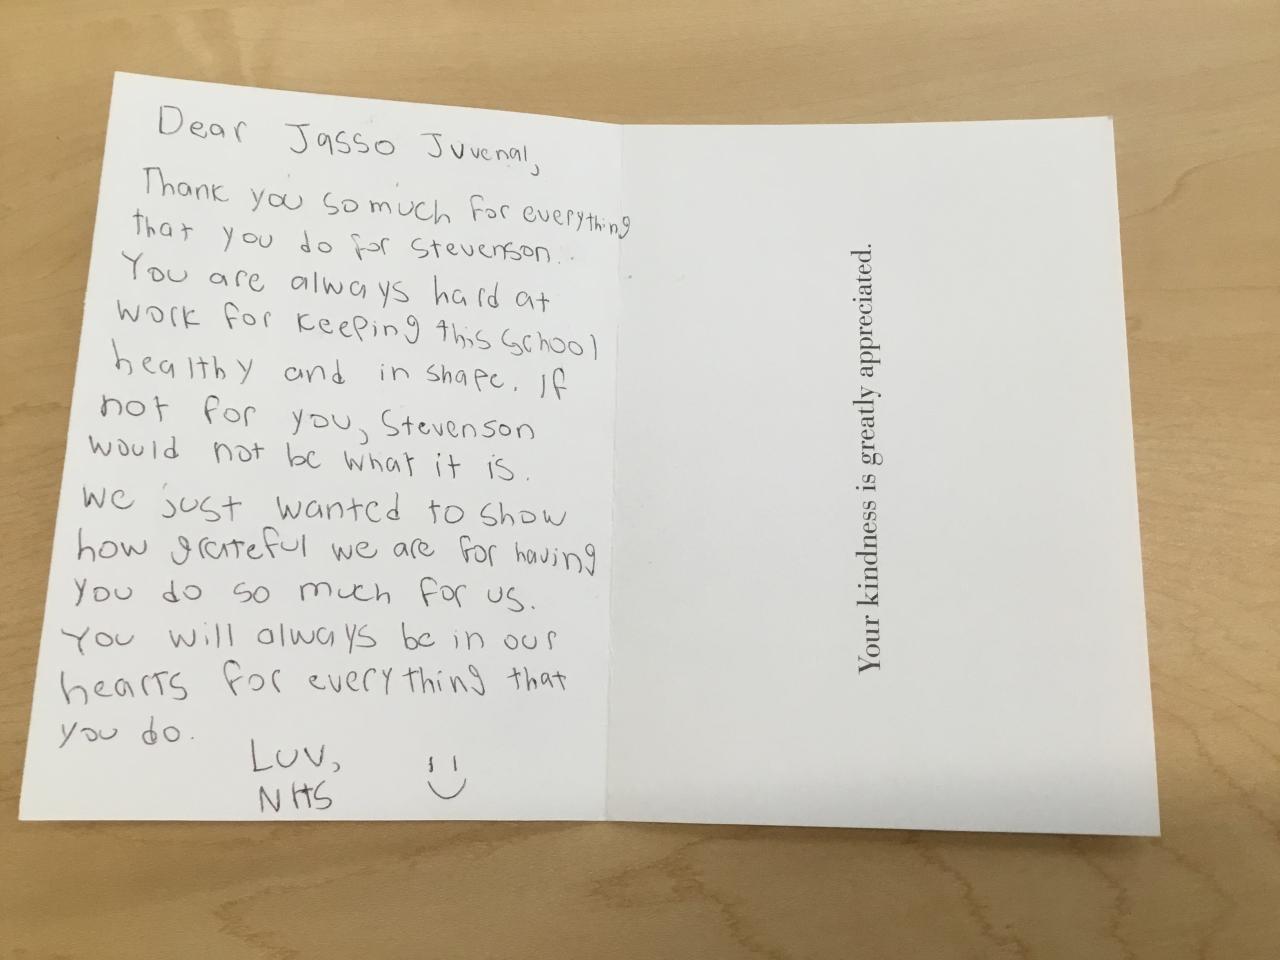 Dear Jasso Juvenal,
Thank you so much for everything
that you do for Stevenson.
You are always hard at
work for keeping this school
healthy and in shape. If
not for you, Stevenson
would not be what it is.
We just wanted to show
how grateful we are for having
you do so much for us.
You will always be in our
hearts for everything that
you do.
Luv,
NHS
Your kindness is greatly appreciated.